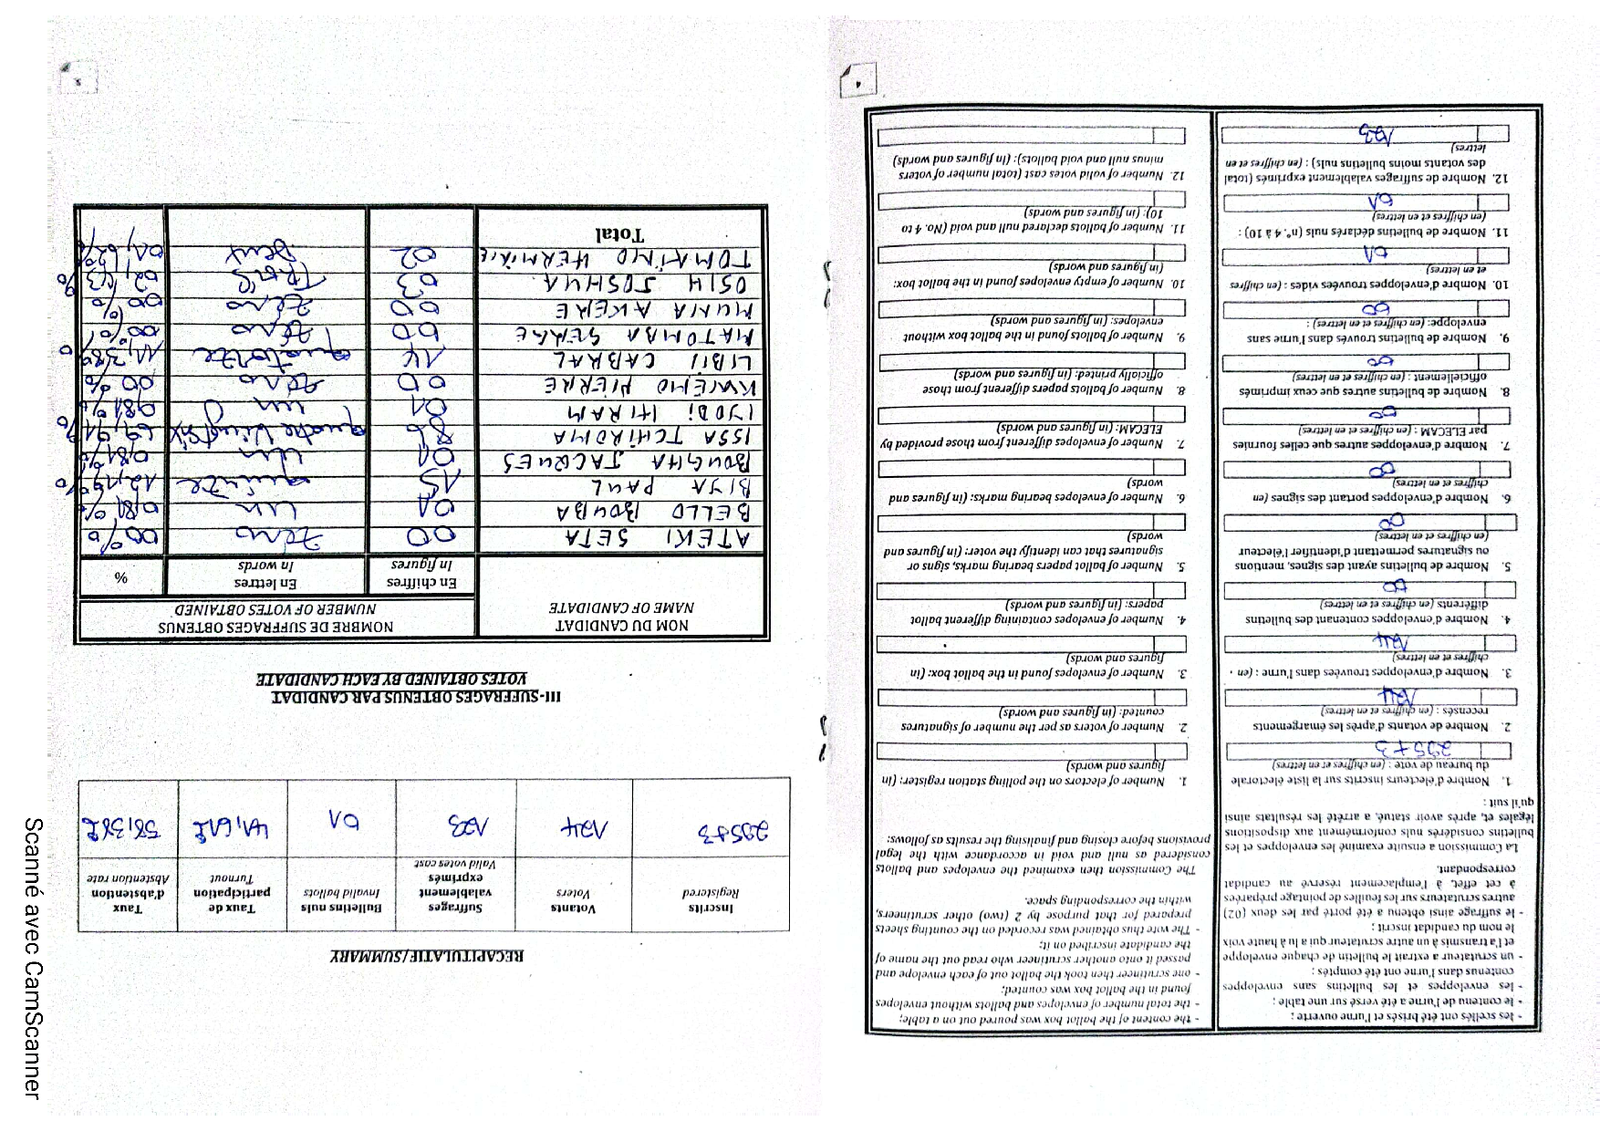 4
- les scellés ont été brisés et l'urne ouverte ;
- le contenu de l'urne a été versé sur une table ;
- les enveloppes et les bulletins sans enveloppes
contenus dans l'urne ont été comptés ;
- un scrutateur a extrait le bulletin de chaque enveloppe
et l'a transmis à un autre scrutateur qui a lu à haute voix
le nom du candidat inscrit ;
- le suffrage ainsi obtenu a été porté par les deux (02)
autres scrutateurs sur les feuilles de pointage préparées
à cet effet, à l'emplacement réservé au candidat
correspondant.
La Commission a ensuite examiné les enveloppes et les
bulletins considérés nuls conformément aux dispositions
légales et, après avoir statué, a arrêté les résultats ainsi
qu'il suit :
1. Nombre d'électeurs inscrits sur la liste électorale
du bureau de vote : (en chiffres et en lettres)
295+3
2. Nombre de votants d'après les émargements
recensés : (en chiffres et en lettres)
124
3. Nombre d'enveloppes trouvées dans l'urne : (en
chiffres et en lettres)
124
4. Nombre d'enveloppes contenant des bulletins
différents (en chiffres et en lettres)
00
5. Nombre de bulletins ayant des signes, mentions
ou signatures permettant d'identifier l'électeur
(en chiffres et en lettres)
00
6. Nombre d'enveloppes portant des signes (en
chiffres et en lettres)
00
7. Nombre d'enveloppes autres que celles fournies
par ELECAM : (en chiffres et en lettres)
00
8. Nombre de bulletins autres que ceux imprimés
officiellement : (en chiffres et en lettres)
00
9. Nombre de bulletins trouvés dans l'urne sans
enveloppe: (en chiffres et en lettres) :
00
10. Nombre d'enveloppes trouvées vides : (en chiffres
et en lettres)
01
11. Nombre de bulletins déclarés nuls (n°. 4 à 10) :
(en chiffres et en lettres)
01
12. Nombre de suffrages valablement exprimés (total
des votants moins bulletins nuls) : (en chiffres et en
lettres)
123
- the content of the ballot box was poured out on a table;
- the total number of envelopes and ballots without envelopes
found in the ballot box was counted;
- one scrutineer then took the ballot out of each envelope and
passed it onto another scrutineer who read out the name of
the candidate inscribed on it;
- The vote thus obtained was recorded on the counting sheets
prepared for that purpose by 2 (two) other scrutineers,
within the corresponding space.
The Commission then examined the envelopes and ballots
considered as null and void in accordance with the legal
provisions before closing and finalising the results as follows:
1. Number of electors on the polling station register: (in
figures and words)
2. Number of voters as per the number of signatures
counted: (in figures and words)
3. Number of envelopes found in the ballot box: (in
figures and words)
4. Number of envelopes containing different ballot
papers: (in figures and words)
5. Number of ballot papers bearing marks, signs or
signatures that can identify the voter: (in figures and
words
6. Number of envelopes bearing marks: (in figures and
words
7. Number of envelopes different from those provided by
ELECAM: (in figures and words)
8. Number of ballots papers different from those
officially printed: (in figures and words)
9. Number of ballots found in the ballot box without
envelopes: (in figures and words)
10. Number of empty envelopes found in the ballot box:
(in figures and words)
11. Number of ballots declared null and void (No. 4 to
10): (in figures and words)
12. Number of valid votes cast (total number of voters
minus null and void ballots): (in figures and words)
RECAPITULATIF/SUMMARY
Inscrits Registered | Votants Voters | Suffrages valablement exprimés Valid votes cast | Bulletins nuls Invalid ballots | Taux de participation Turnout | Taux d'abstention Abstention rate
295+3 | 124 | 123 | 01 | 41,61% | 58,38%
III-SUFFRAGES OBTENUS PAR CANDIDAT
VOTES OBTAINED BY EACH CANDIDATE
NOM DU CANDIDAT NAME OF CANDIDATE | NOMBRE DE SUFFRAGES OBTENUS NUMBER OF VOTES OBTAINED
En chiffres In figures | En lettres In words | %
ATEKI SETA | 00 | zéro | 00%
BELLO BOUBA | 01 | un | 0,81%
BIYA PAUL | 15 | quinze | 12,19%
BOUGHA JACQUES | 01 | un | 0,81%
ISSA TCHIROMA | 86 | quatre vingt six | 69,91%
IYODI HIRAM | 01 | un | 0,81%
KWEMO PIERRE | 00 | zéro | 00%
LIBII CABRAL | 14 | quatorze | 11,38%
MATOMBA SERGE | 00 | zéro | 00%
MUNA AKERE | 00 | zéro | 00%
OSIH JOSHUA | 03 | Trois | 02,43%
TOMAINO HERMINE | 02 | Deux | 01,62%
Total
Scanné avec CamScanner